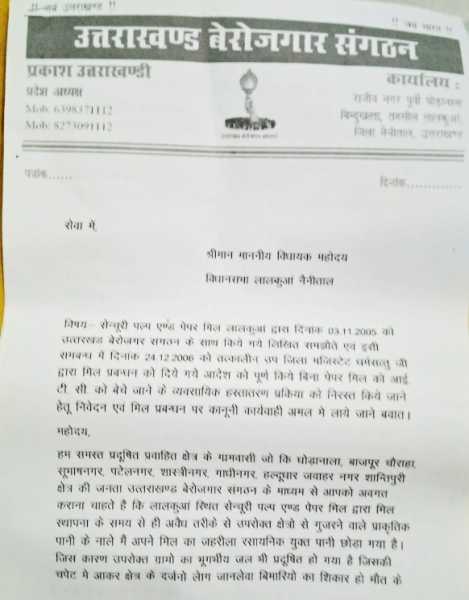 !! जय उत्तराखण्ड !!
!! जय भारत !!
उत्तराखण्ड बेरोजगार संगठन
प्रकाश उत्तराखण्डी
प्रदेश अध्यक्ष
Mob: 6398371112
Mob: 8273091112
कार्यालय :
राजीव नगर पूर्वी घोड़ानाला
बिन्दुखत्ता, तहसील लालकुआं,
जिला नैनीताल, उत्तराखण्ड
पत्रांक......
दिनांक............
सेवा में,
श्रीमान माननीय विधायक महोदय
विधानसभा लालकुआं नैनीताल
विषय:- सेन्चुरी पल्प एण्ड पेपर मिल लालकुआं द्वारा दिनांक 03.11.2005 को
उत्तराखंड बेरोजगार संगठन के साथ किये गये लिखित समझौते एवं इसी
सम्बन्ध में दिनांक 24.12.2006 को तत्कालीन उप जिला मजिस्टेट धर्मसत्तु जी
द्वारा मिल प्रबन्धन को दिये गये आदेश को पूर्ण किये बिना पेपर मिल को आई.
टी. सी. को बेचे जाने के व्यवसायिक हस्तातरण प्रकिया को निरस्त किये जाने
हेतू निवेदन एवं मिल प्रबन्धन पर कानूनी कार्यवाही अमल मे लाये जाने बवात।
महोदय,
हम समस्त प्रदूषित प्रवाहित क्षेत्र के गामवासी जो कि घोड़ानाला, बाजपूर चौराहा,
सूभाषनगर, पटेलनगर, शास्त्रीनगर, गाधीनगर, हल्दूधार जवाहर नगर शान्तिपुरी
क्षेत्र की जनता उत्तराखण्ड बेरोजगार संगठन के माध्यम से आपको अवगत
कराना चाहते है कि लालकुआं स्थित सेन्चुरी पल्प एण्ड पेपर मिल द्वारा मिल
स्थापना के समय से ही अवैध तरीके से उपरोक्त क्षेत्रो से गुजरने वाले प्राकृतिक
पानी के नाले मै अपने मिल का जहरीला रसायनिक युक्त पानी छोडा गया है।
जिस कारण उपरोक्त ग्रामो का भूगभीय जल भी प्रदूषित हो गया है जिसकी
चपेट मे आकर क्षेत्र के दर्जनो लोग जानलेवा बिमारियो का शिकार हो मौत के